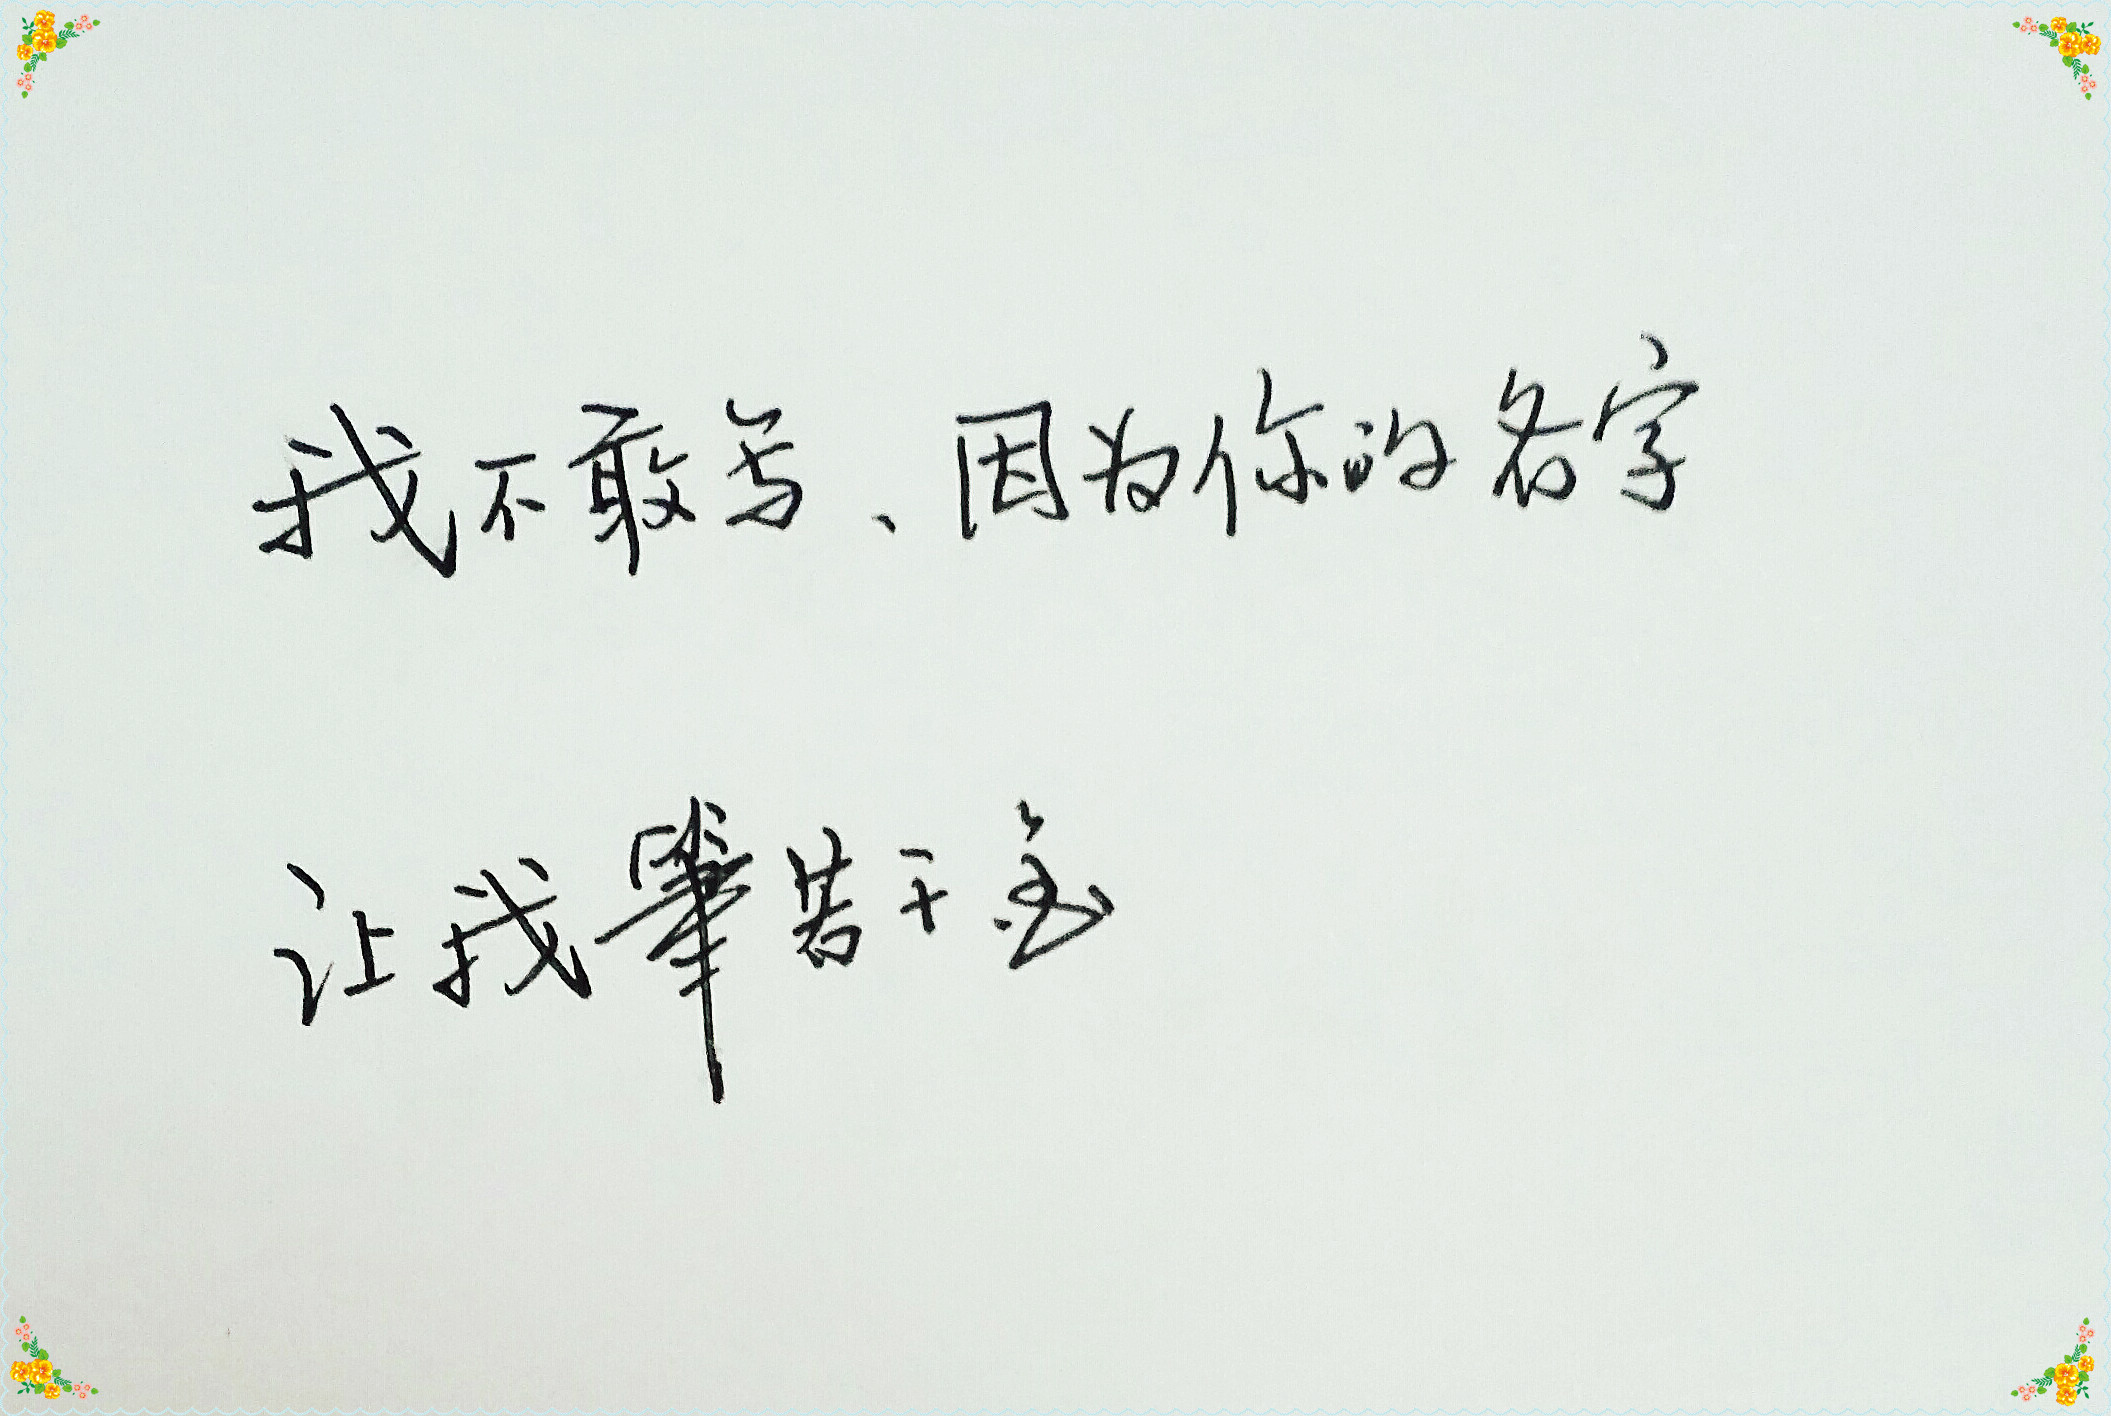 我不敢写、因为你的名字
让我筆若千金